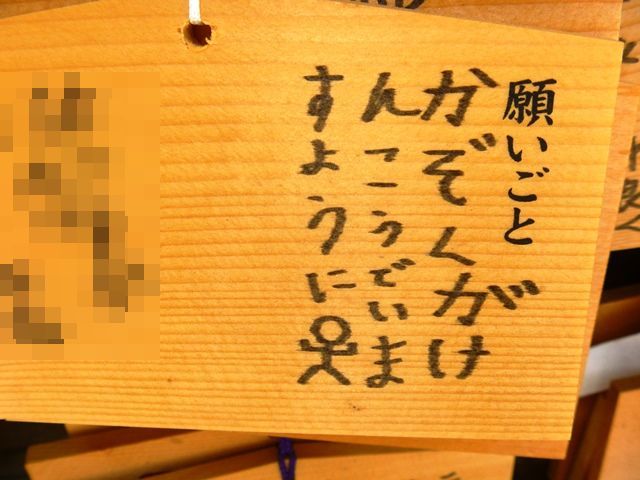 願いごと
かぞくがけ
んこうでいま
すように